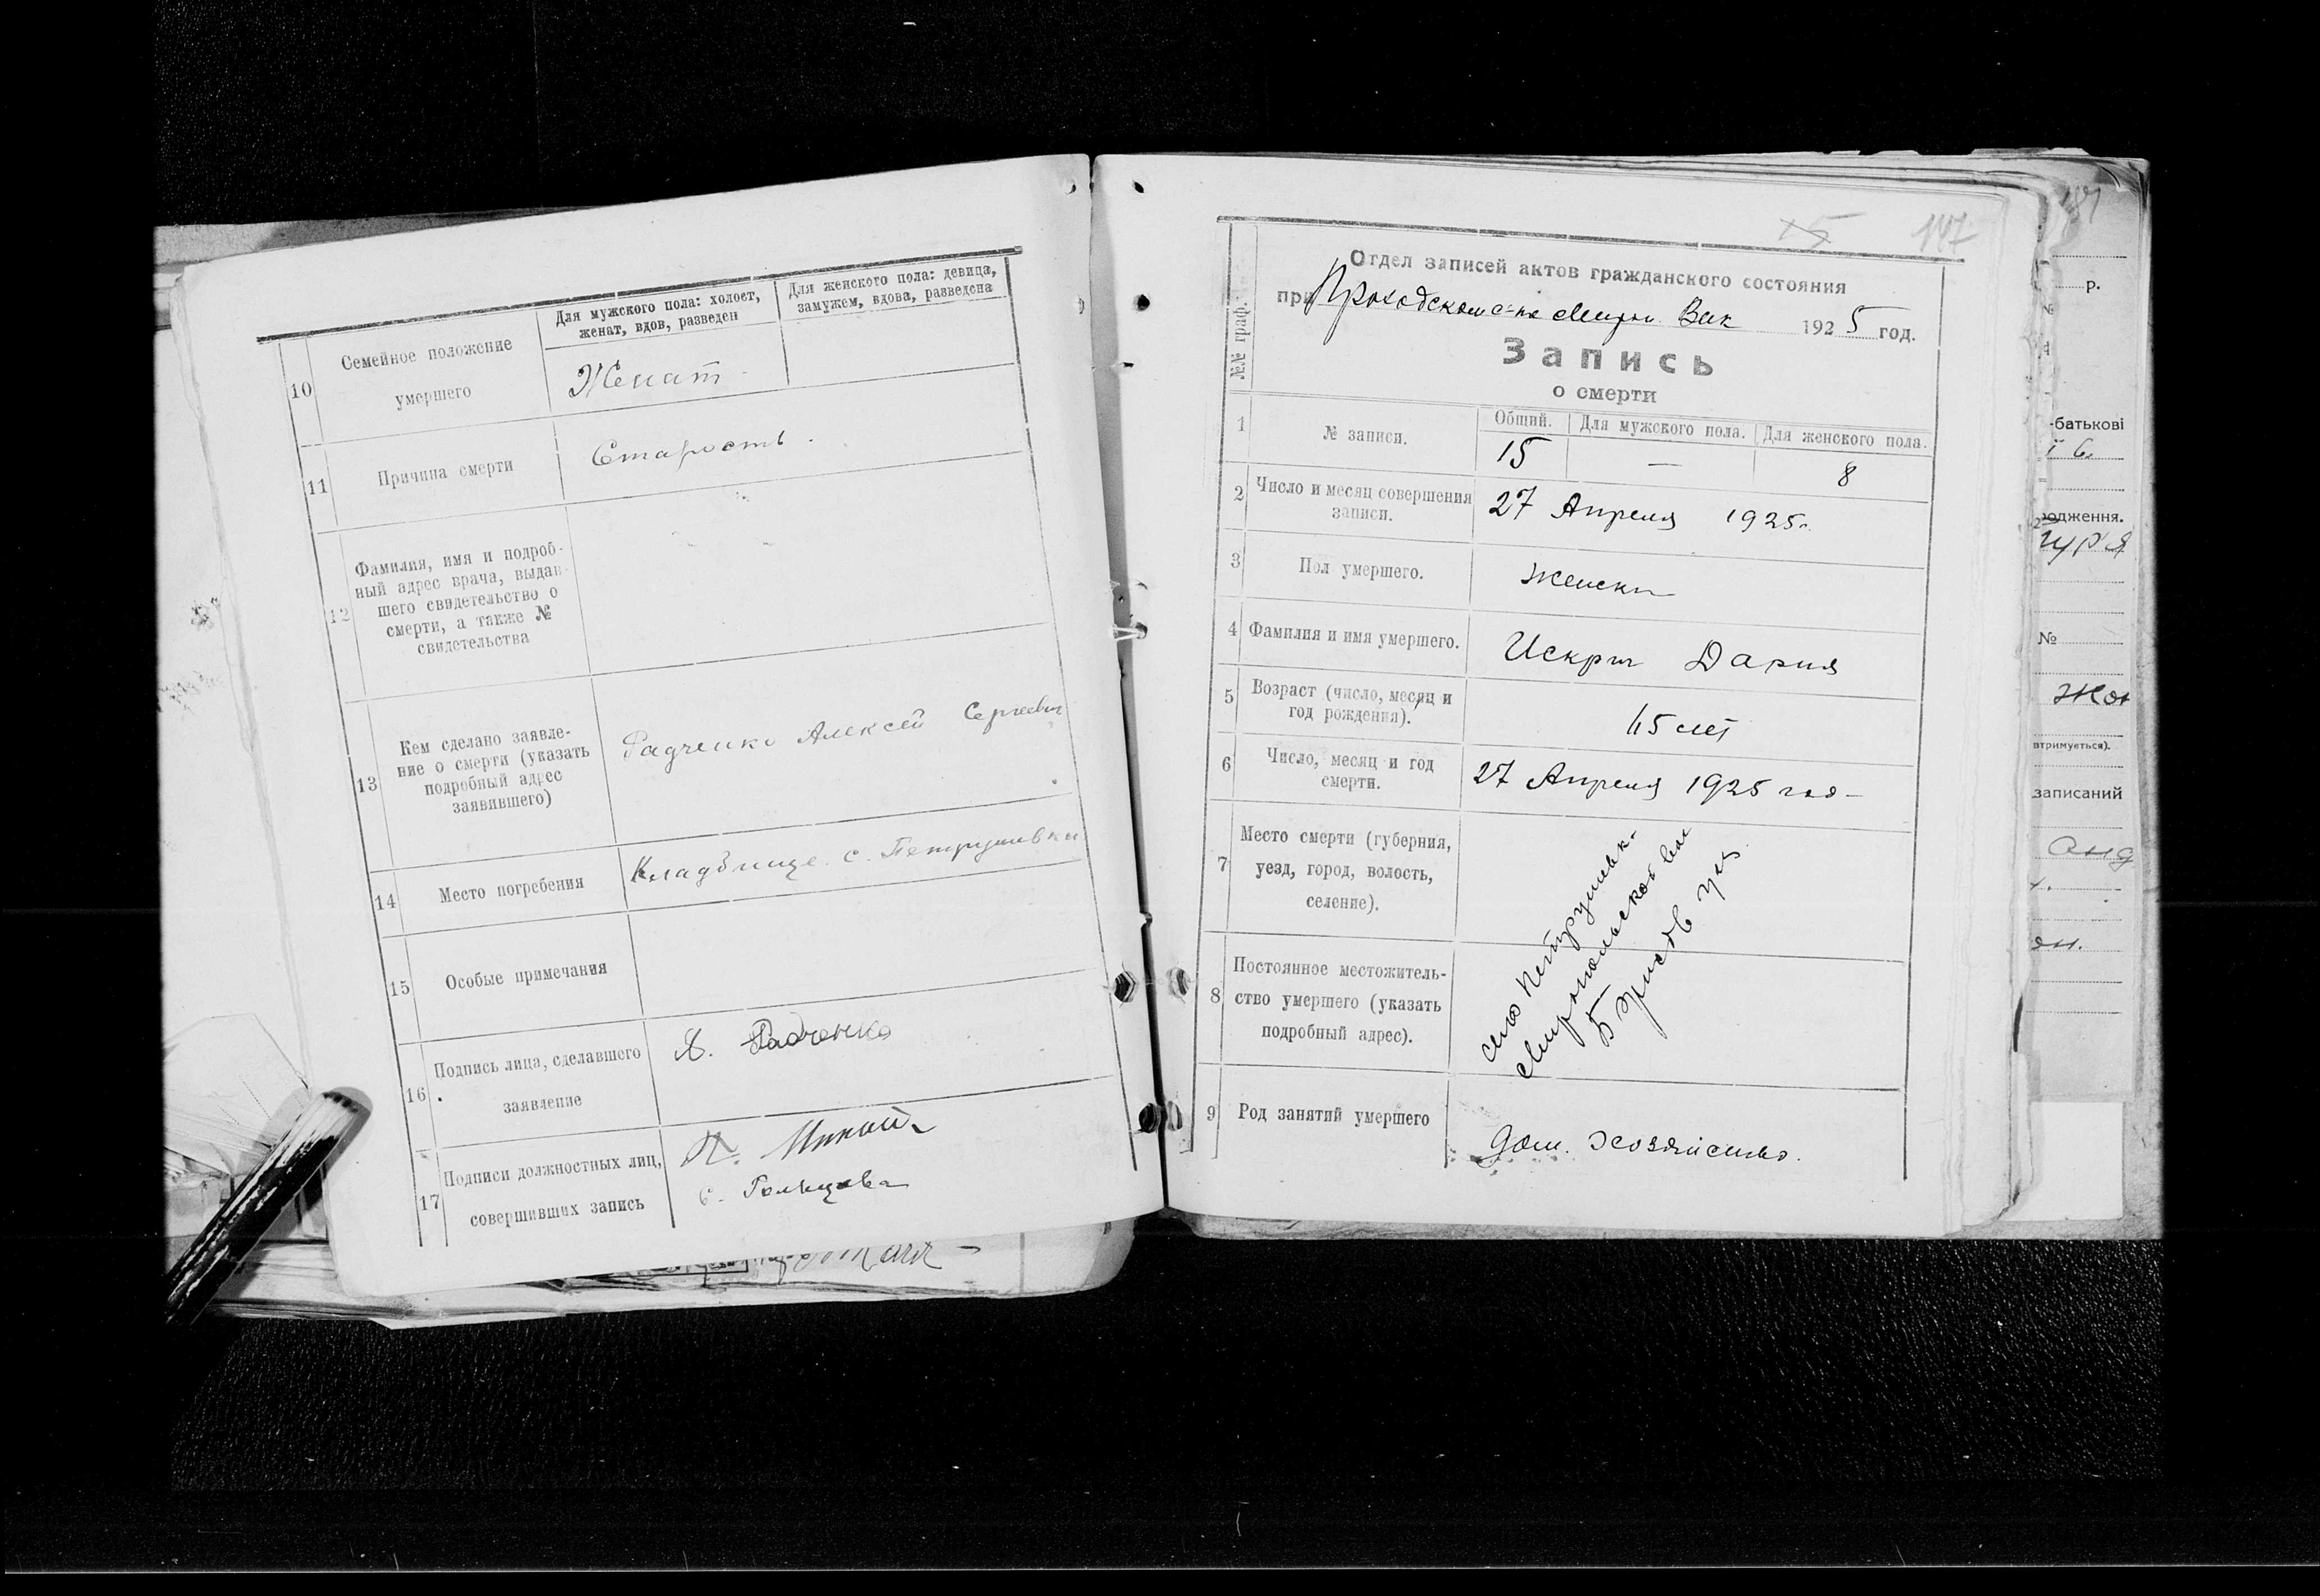 Для мужского пола: холост,
женат, вдов, разведен
Для женского пола: девица,
замужем, вдова, разведена
10
Семейное положение
умершего
Женат
11
Причина смерти
Старость.
12
Фамилия, имя и подроб-
ный адрес врача, выдав-
шего свидетельство о
смерти, а также №
свидетельства
13
Кем сделано заявле-
ние о смерти (указать
подробный адрес
заявившего)
Радченко Алексей Сергеевич
14
Место погребения
Кладбище с. Петрушевки
15
Особые примечания
16
Подпись лица, сделавшего
заявление
А. Радченко
17
Подписи должностных лиц,
совершивших запись
С. Гольцова
15 147
Отдел записей актов гражданского состояния
при Вик 1925 год.
№№ граф.
Запись
о смерти
1
№ записи.
Общий. Для мужского пола. Для женского пола.
15 — 8
2
Число и месяц совершения
записи.
27 Апреля 1925г.
3
Пол умершего.
Женски
4
Фамилия и имя умершего.
Искрич Дария
5
Возраст (число, месяц и
год рождения).
45 лет
6
Число, месяц и год
смерти.
27 Апреля 1925 год
7
Место смерти (губерния,
уезд, город, волость,
селение).
8
Постоянное местожитель-
ство умершего (указать
подробный адрес).
село Петрушевк.
Миропольской вол
9
Род занятий умершего
Дом. хозяйство.
р.
№
-батькові
одження.
№
втримується).
записаний